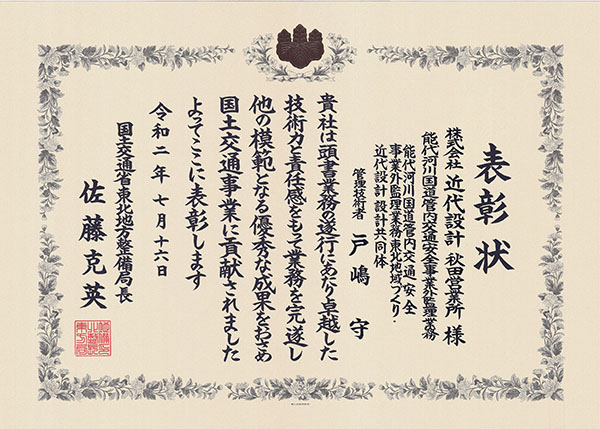 表彰状
株式会社 近代設計 秋田営業所 様
能代河川国道管内交通安全事業外監理業務
能代河川国道管内交通安全
事業外監理業務東北地域づくり・
近代設計設計共同体
管理技術者 戸嶋 守
貴社は頭書業務の遂行にあたり卓越した
技術力と責任感をもって業務を完遂し
他の模範となる優秀な成果をおさめ
国土交通事業に貢献されました
よってここに表彰します
令和二年七月十六日
国土交通省東北地方整備局長
佐藤克英